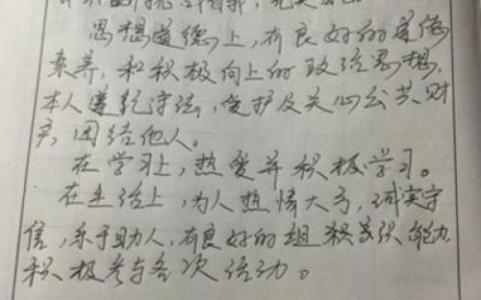 思想道德上，有良好的道德
素养，和积极向上的政治思想，
本人遵纪守法，爱护及关心公共财
产，团结他人。
在学习上，热爱并积极学习。
在生活上，为人热情大方，诚实守
信，乐于助人，有良好的组积织能力
积极参与各次活动。